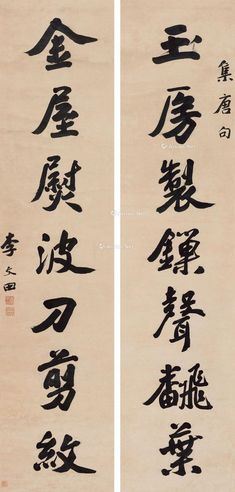 集唐句
玉房製鏁聲飜葉
金屋熨波刀剪紋
李文田